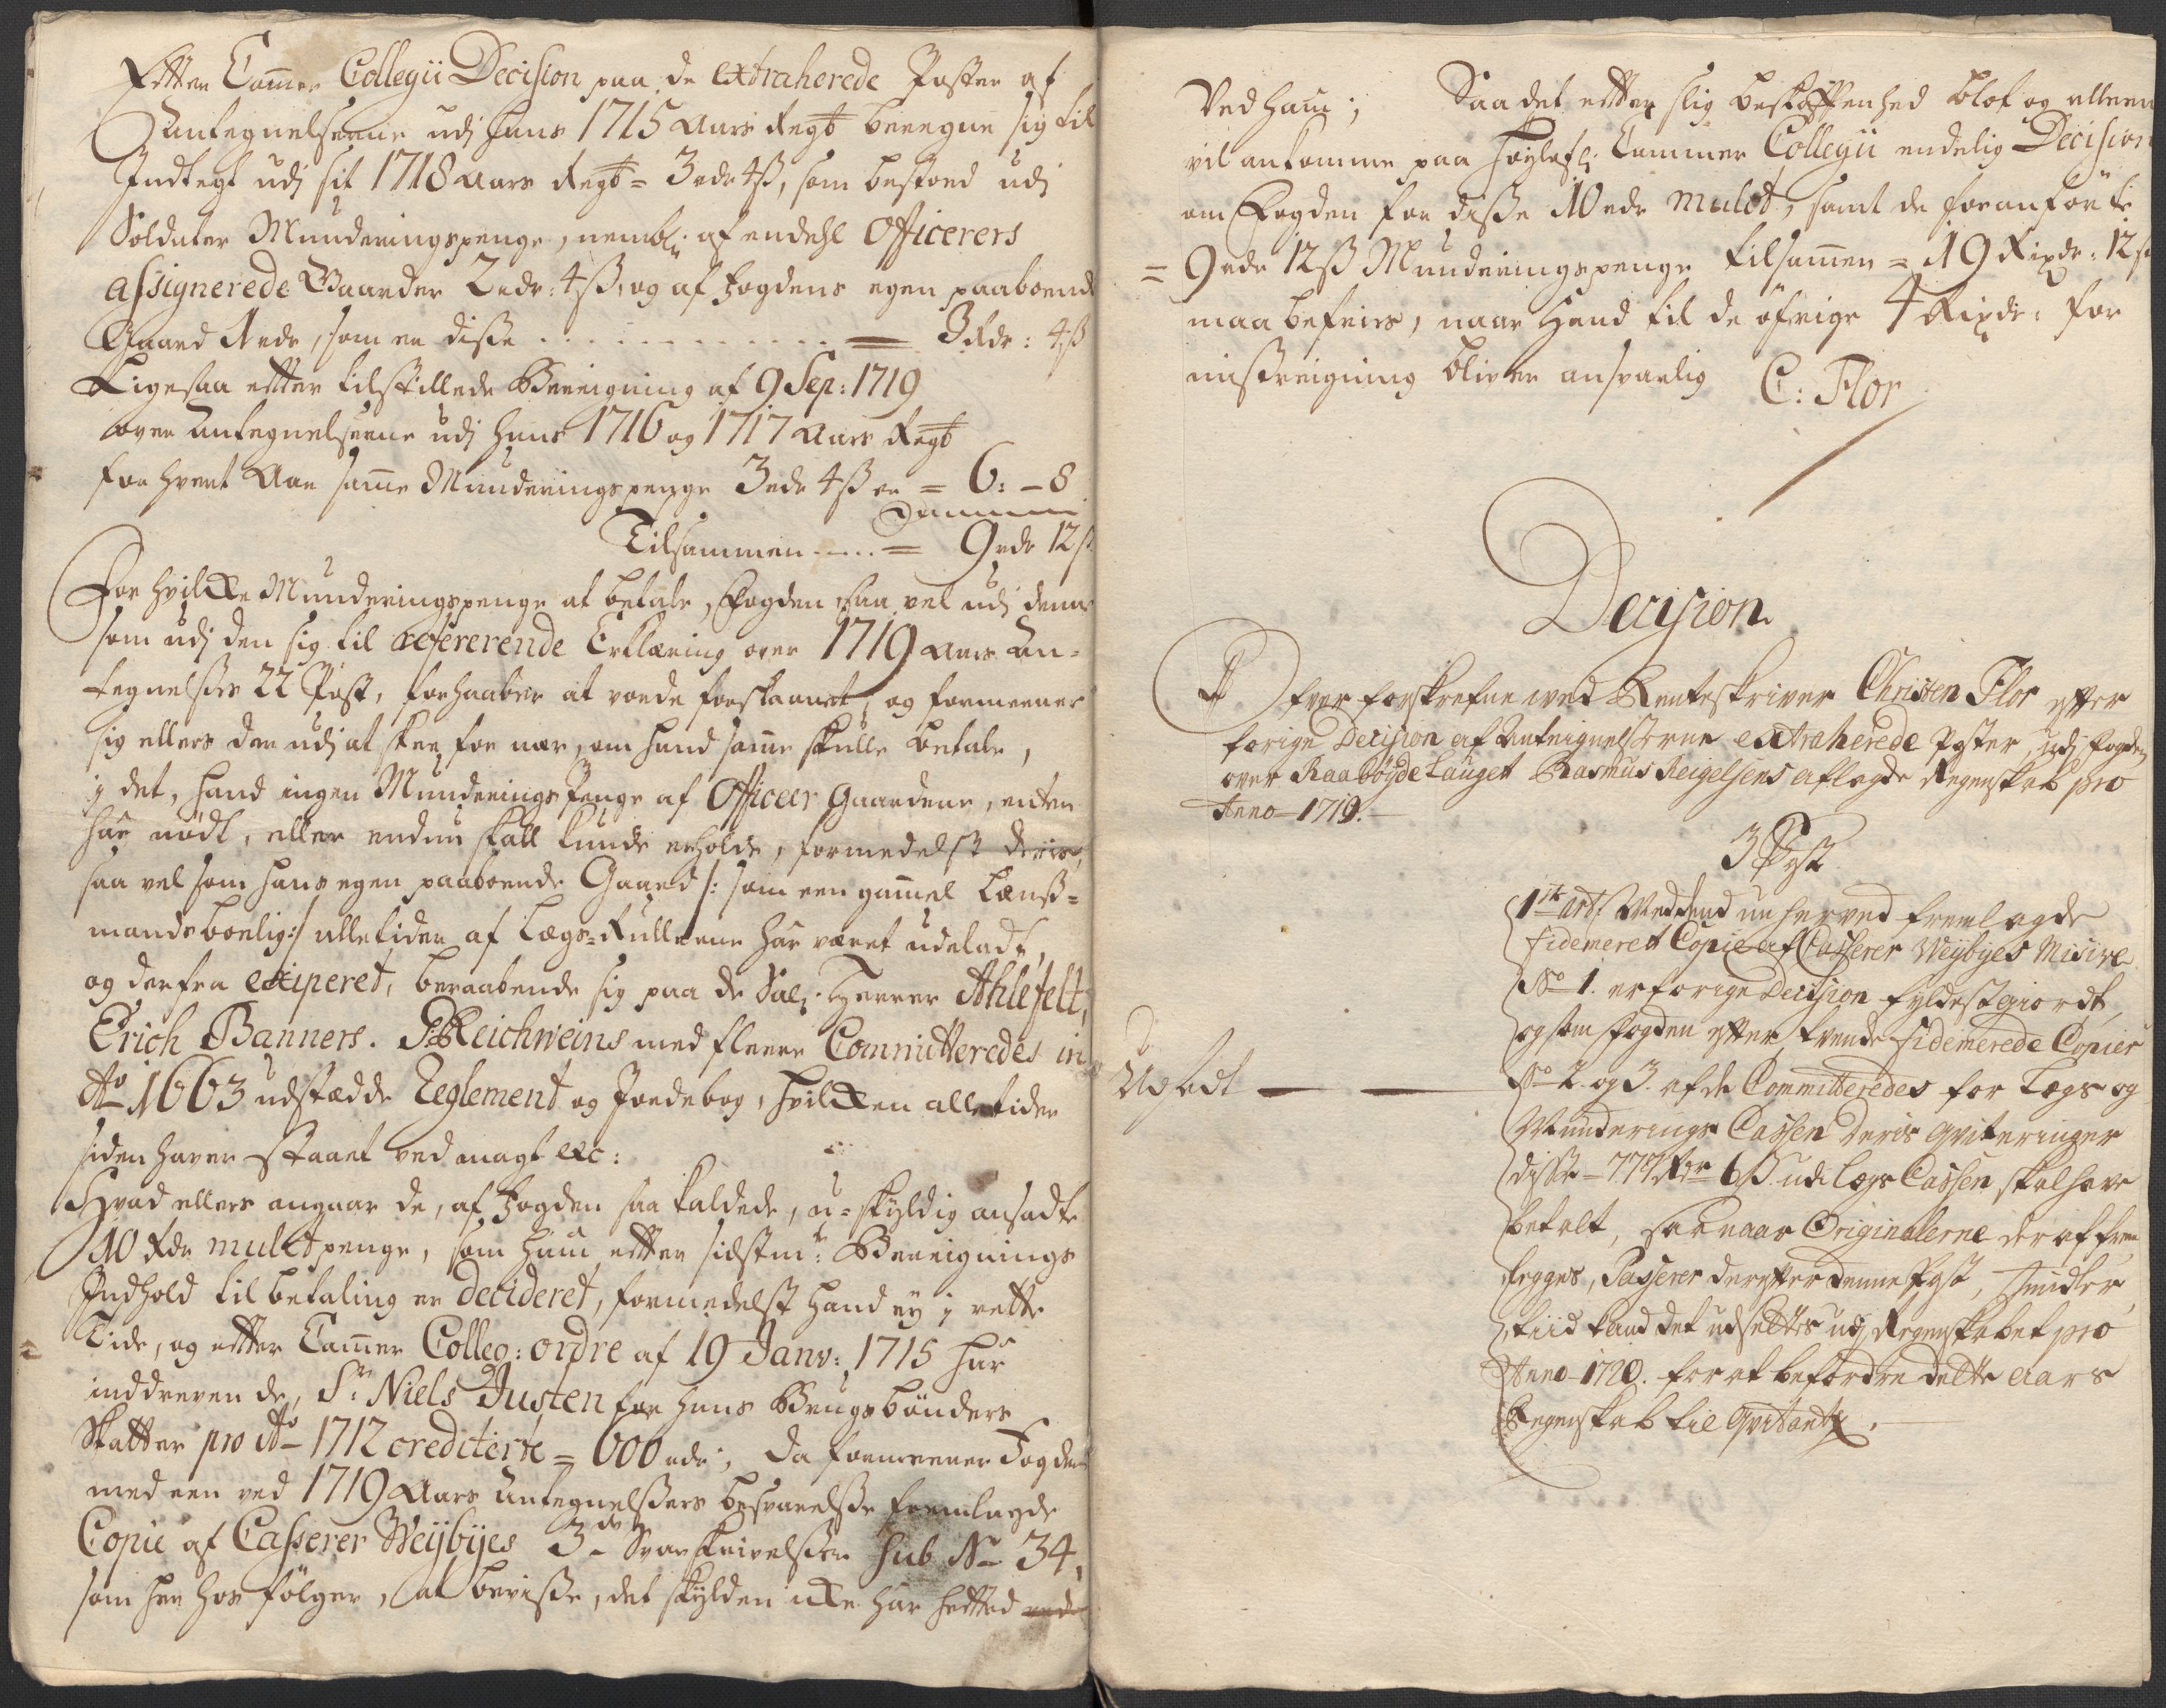 Efter Cammer Collegii Decision paa de extraherede Poster af
Antegnelserne udj hans 1715 Aars Regb beregne sig til
Indtegt udj sit 1718 Aars Regb = 3 rdr 4 ß, som bestoed udj
Soldater Munderingspenge, nembl: af endehl Officerers
assignerede Gaarder 2 rdr: 4 ß, og af Fogdens egen paaboende
Gaard 1 rdr, som er disse . . . . . . . = 3 Rdr: 4 ß
Ligesaa efter tilstillede Bereigning af 9 Sep: 1719
over Antegnelserne udj hans 1716 og 1717 Aars Regb
for hvert Aar samme Munderingspenge 3 rdr 4 ß er = 6: - 8
Tilsammen . . . = 9 rdr 12 ß
For hvilke Munderingspenge at betale, Fogden saa vel udj denne
som udj den sig til refererende Erklæring over 1719 Aars An-
tegnelsers 22 Post, forhaaber at vorde forskaanet, og formeener
sig ellers der udj at skee for nær, om hand samme skulle betale,
j det, hand ingen Munderings Penge af Officer Gaardene, enten
har nødt, eller endnu skall kunde erholde, formedelst deris,
saa vel som hans egen paaboende Gaard /: som een gammel Lænß-
mandsboelig :/ alletider af Lægs-Rullerne har været udeladt,
og derfra exiperet, beraabende sig paa de Sal: Herrer Ahlefelt,
Erich Banners. G: Reichweins med fleere Committeredes in
Ao 1663 udstædde Reglement og Jordebog, hvilken alletider
siden haver staaet ved magt etc:
Hvad ellers angaar de, af Fogden saa kaldede, u-skyldig ansadte
10 Rdr mulctpenge, som ham efter sidstmte Bereignings
Indhold til betaling er decideret, formedelst hand ej j rette
Tide, og efter Cammer Colleg: ordre af 19 Janv: 1715 har
inddreven de, Sr: Niels Justen for hans Brugsbønders
Skatter pro Ao 1712 crediterte = 600 rdr; da formeener Fogden
med een ved 1719 Aars Antegnelsers besvarelse fremlagde
Copie af Casserer Weijbijes 3de Svarskrivelser sub No 34,
som her hos følger, at bevisse, det skylden icke har hefted ved
Ved ham; Saa det efter slig beskaffenhed blot og alleene
vil ankomme paa Høylofl: Cammer Collegii endelig Decision
om Fogden for disse 10 rdr mulct, samt de foranførte
= 9 rdr 12 ß Munderingspenge tilsammen = 19 Rixdr: 12 ß
maa befries, naar Hand til de øfrige 4 Rixdr: for
misreigning bliver ansvarlig C: Flor
Decision
Ofver forskrefne ved Renteskriver Christen Flor efter
forige Decision af Anteignelserne extraherede Poster, udj Fogden
over Raabøyde Lauget Rasmus Reigelsens aflagde Regenskab pro
Anno 1719.
3 Post
1ste art: Med dend nu herved fremlagde
fidemeret Copie af Casserer Weybyes Missive
No 1. er forige Decision fyldestgiordt,
og som Fogden efter tvende fidemerede Copier
Udsadt — — No 2. og 3. af de Committeredes for Lægs og
Munderings Cassen deris Qviteringer
disse = 777 Rdr 6 ß. udi Lægs Cassen skal have
betalt, saa naar Originalerne deraf frem
legges, Passerer derefter denne Post, Imidler
tiid kand det udsettes udj Regenskabet pro
Anno 1720. for at befordre dette Aars
Regenskab til Qvitantz.